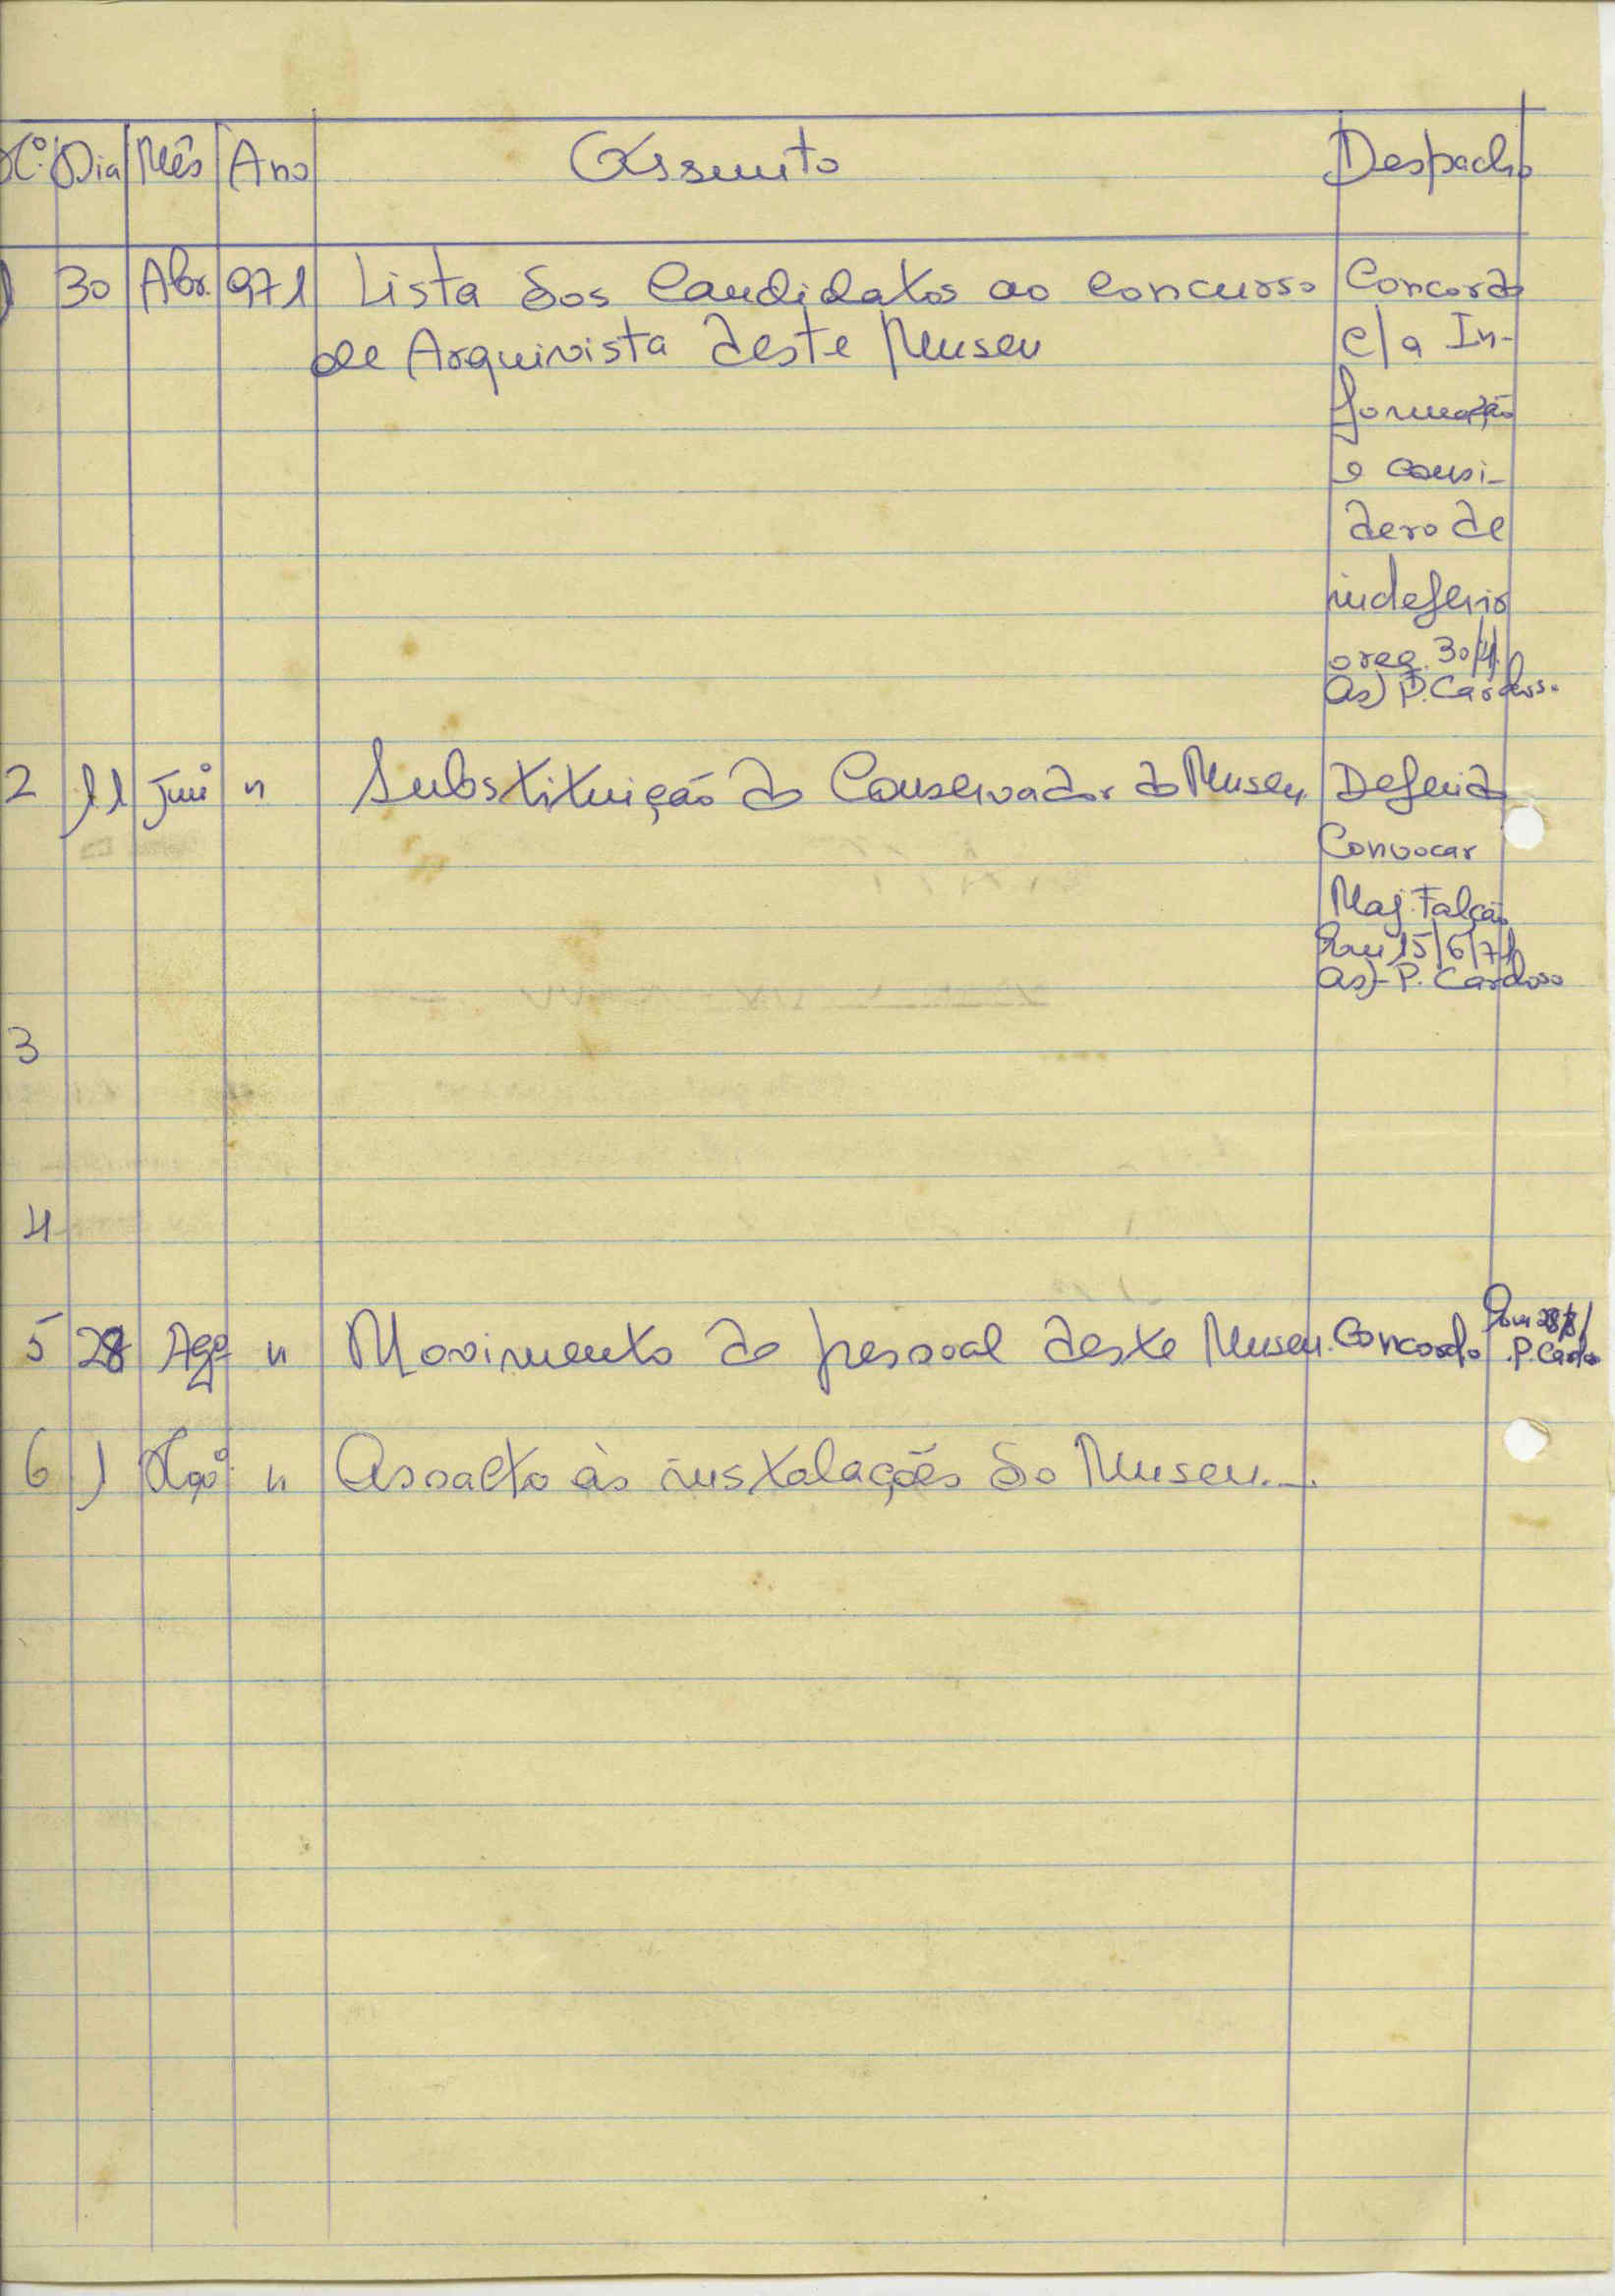 Nº Dia Mês Ano Assunto Despacho
1 30 Abr. 971 Lista dos Candidatos ao concurso Concordo
de Arquivista deste Museu c/a In-
formação
e consi-
dero de
indeferir
o req. 30/4/
as) P. Cardoso.
2 11 Junº " Substituição do Conservador do Museu Deferido
Convocar
Maj. Falcão
Em 15/6/71
as)- P. Cardoso
3
4
5 28 Agº " Movimento do pessoal deste Museu. Concordo Em 28/8/
P. Cardoso
6 1 " Assalto às instalações do Museu.—